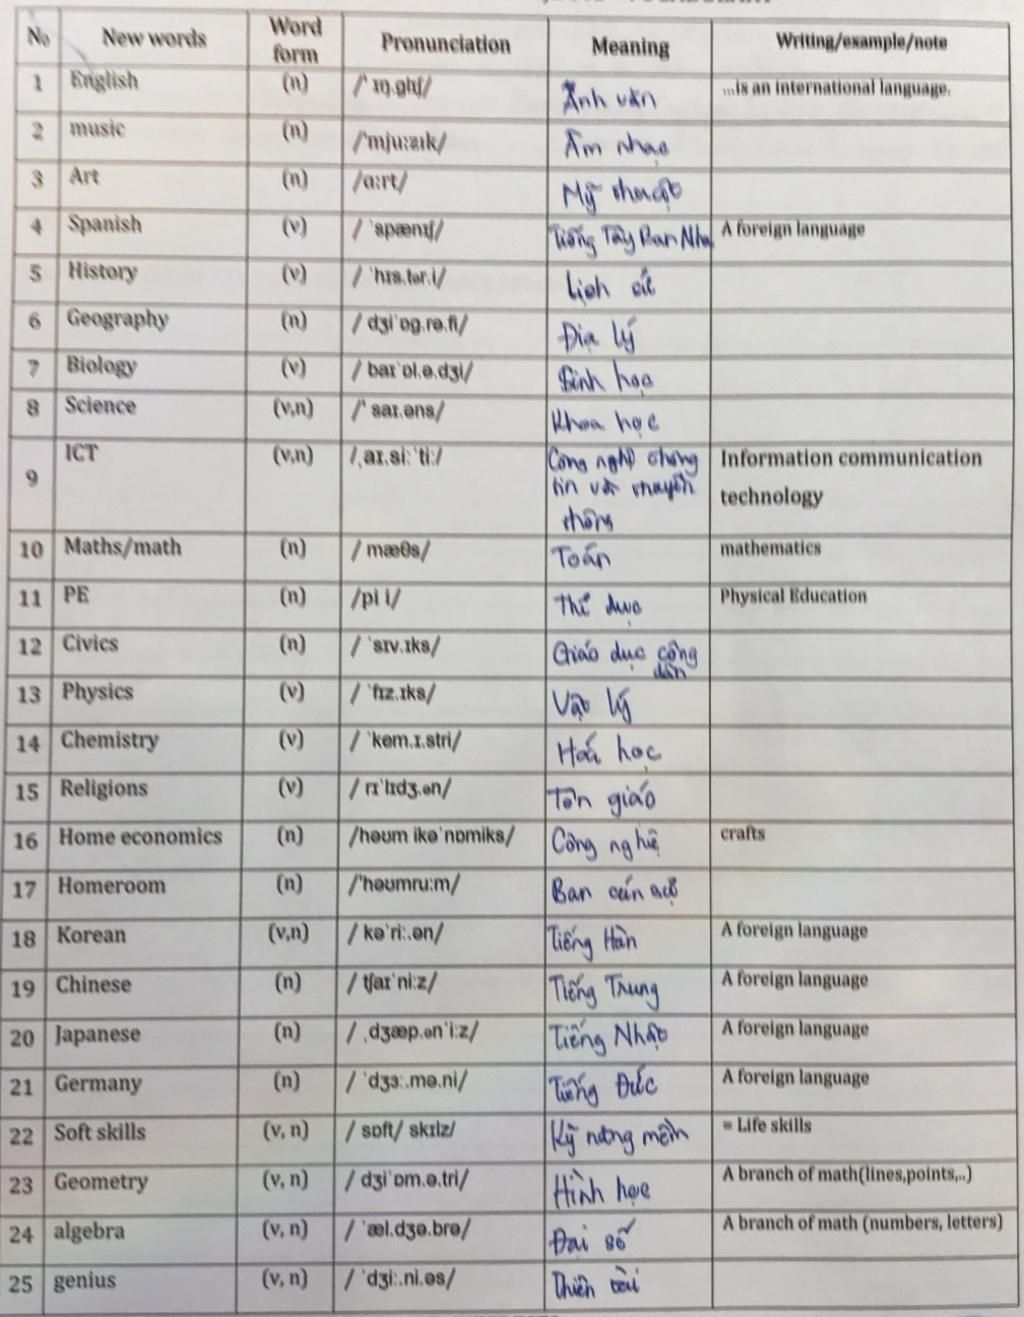 No New words Word form Pronunciation Meaning Writing/example/note
1 English (n) /ˈ ɪŋ.glɪʃ/ Anh văn ...is an international language.
2 music (n) /ˈmjuːzɪk/ Âm nhạc
3 Art (n) /ɑːrt/ Mỹ thuật
4 Spanish (v) / ˈspænɪʃ/ Tiếng Tây Ban Nha A foreign language
5 History (v) / ˈhɪs.tər.i/ Lịch sử
6 Geography (n) / dʒiˈɒg.rə.fi/ Địa lý
7 Biology (v) / baɪˈɒl.ə.dʒi/ Sinh học
8 Science (v,n) /ˈ saɪ.əns/ Khoa học
9 ICT (v,n) /ˌaɪ.siːˈtiː/ Công nghệ thông Information communication
tin và truyền technology
thông
10 Maths/math (n) / mæθs/ Toán mathematics
11 PE (n) /pi i/ Thể dục Physical Education
12 Civics (n) / ˈsɪv.ɪks/ Giáo dục công
dân
13 Physics (v) / ˈfɪz.ɪks/ Vật lý
14 Chemistry (v) / ˈkem.ɪ.stri/ Hoá học
15 Religions (v) / rɪˈlɪdʒ.ən/ Tôn giáo
16 Home economics (n) /həʊm ikəˈnɒmiks/ Công nghệ crafts
17 Homeroom (n) /ˈhəʊmruːm/ Ban cán sự
18 Korean (v,n) / kəˈriː.ən/ Tiếng Hàn A foreign language
19 Chinese (n) / tʃaɪˈniːz/ Tiếng Trung A foreign language
20 Japanese (n) / ˌdʒæp.ənˈiːz/ Tiếng Nhật A foreign language
21 Germany (n) / ˈdʒɜː.mə.ni/ Tiếng Đức A foreign language
22 Soft skills (v, n) / sɒft/ skɪlz/ Kỹ năng mềm = Life skills
23 Geometry (v, n) / dʒiˈɒm.ə.tri/ Hình học A branch of math(lines,points,..)
24 algebra (v, n) / ˈæl.dʒə.brə/ Đại số A branch of math (numbers, letters)
25 genius (v, n) / ˈdʒiː.ni.əs/ Thiên tài